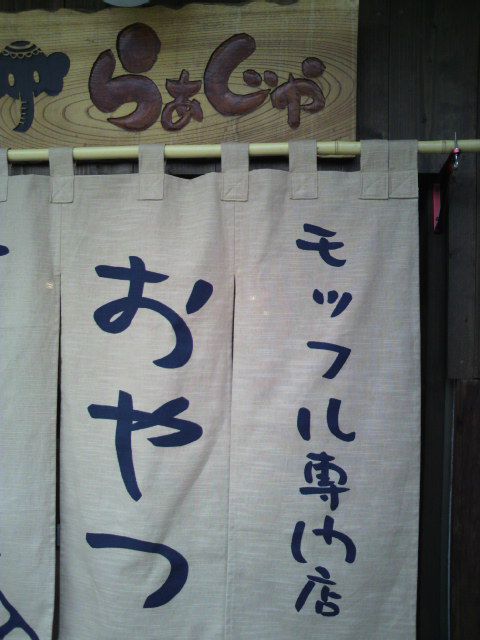 らぁじゃ
モッフル専門店
おやつ